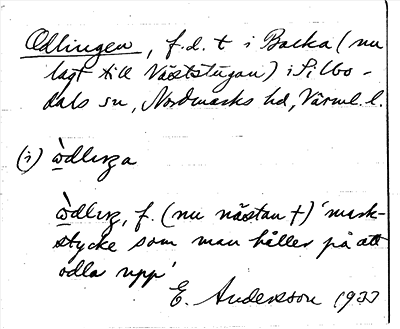 Odlingen, f.d. t i Backa (nu
lagt till Väststugan) i Silbo-
dals sn, Nordmarks hd, Värml. l.
(i) òdlıŋa
òdlıŋ, f. (nu nästan †) 'mark-
stycke som man håller på att
odla upp'
E. Andersson 1933